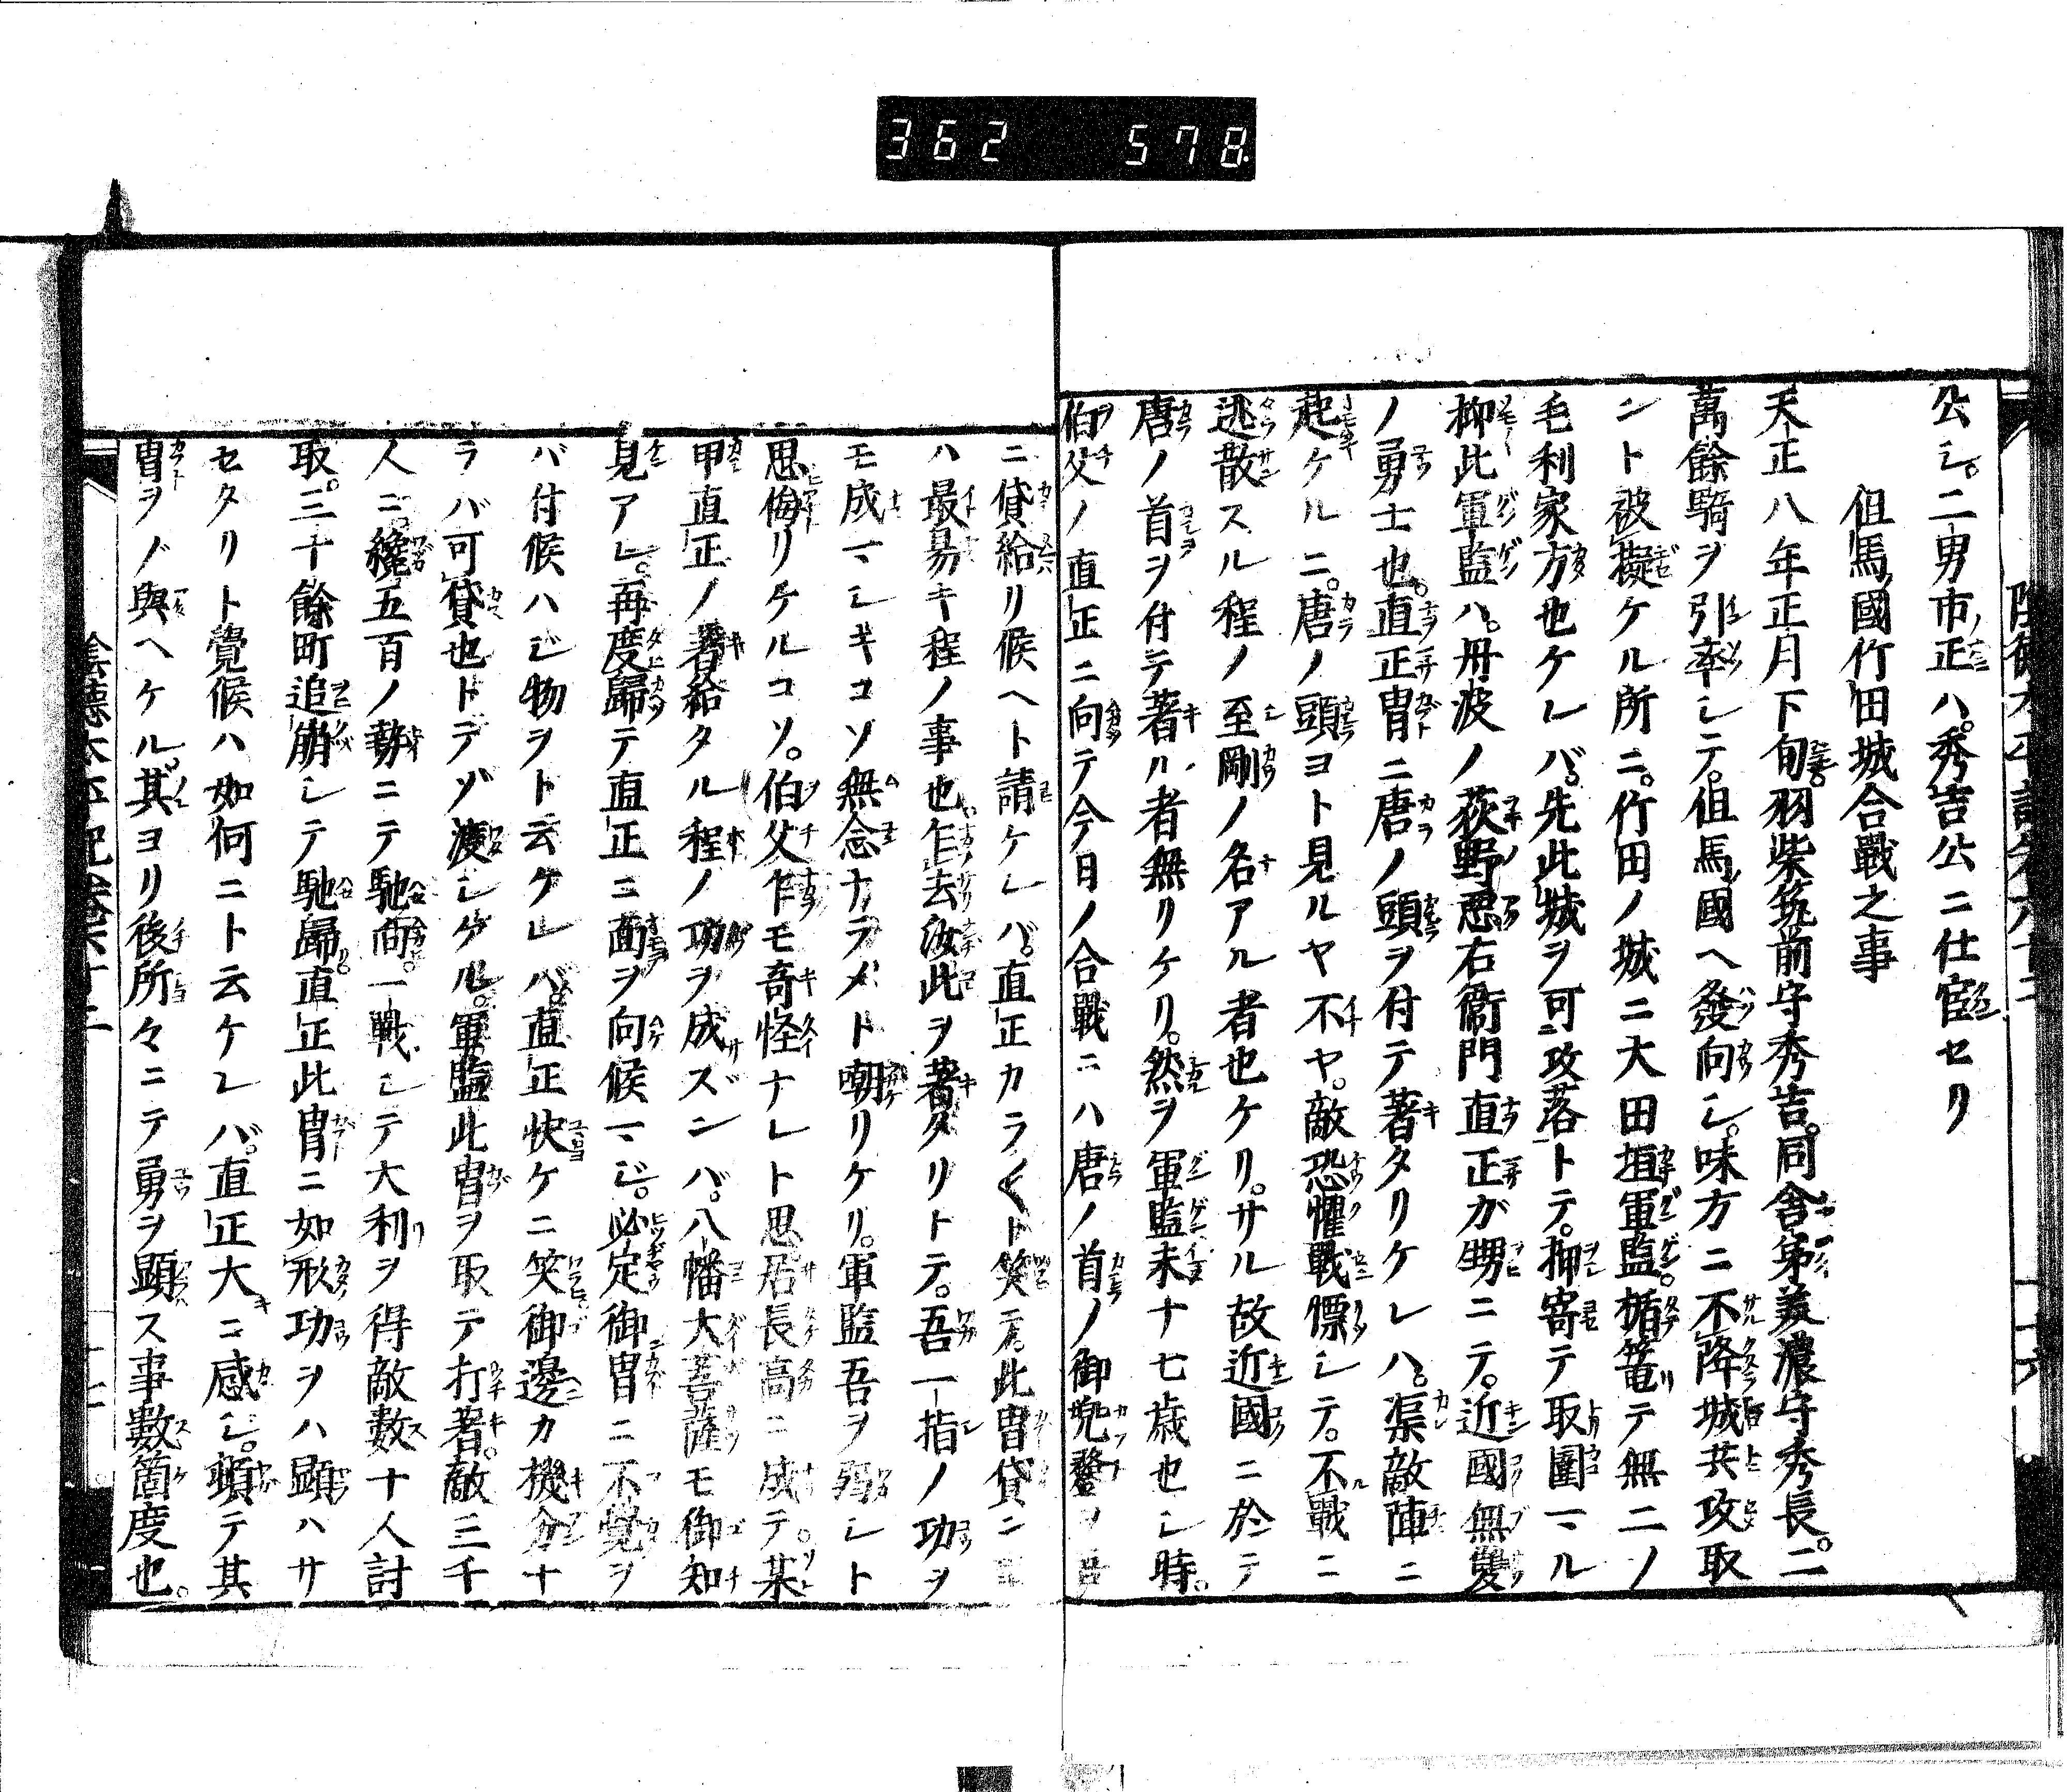 362 578
公シ。二男市正ハ。秀吉公ニ仕宦セリ
但馬國竹田城合戰之事
天正八年正月下旬。羽柴筑前守秀吉。同舎弟美濃守秀長。二
萬餘騎ヲ引率シテ。但馬國ヘ發向シ。味方ニ不降城共攻取
ント被擬ケル所ニ。竹田ノ城ニ大田垣軍監。楯篭テ無二ノ
毛利家方也ケレバ。先此城ヲ可攻落トテ。押寄テ取圍マル
抑此軍監ハ。丹波ノ荻野悪右衞門直正ガ甥ニテ。近國無雙
ノ勇士也。直正冑ニ唐ノ頭ヲ付テ著タリケレハ。渠敵陣ニ
起ケルニ。唐ノ頭ヨト見ルヤ不ヤ。敵恐懼戰慓シテ。不戰ニ
逃散スル程ノ至剛ノ名アル者也ケリ。サル故近國ニ於テ
唐ノ首ヲ付テ著ル者無リケリ。然ヲ軍監未十七歳也シ時。
伯父ノ直正ニ向テ今日ノ合戰ニハ唐ノ首ノ御兜鍪ヲ
ニ貸給リ候ヘト請ケレバ。直正カラ〱ト笑テ。此冑貸ン
ハ最昜キ程ノ事也乍去汝此ヲ著タリトテ。吾一指ノ功ヲ
モ成マシキコソ無念ナラメト嘲リケリ。軍監吾ヲ弱シト
思侮リケルコソ。伯父乍モ竒怪ナレト思。居長高ニ成テ。某
甲直正ノ著給タル程ノ功ヲ成ズンバ。八幡大菩薩モ御知
見アレ。再度歸テ直正ニ面ヲ向候マジ。必定御冑ニ不覺ヲ
バ付候ハジ物ヲト云ケレバ。直正快ケニ笑御邊カ機分ナ
ラバ可貸也トテゾ渡シケル。軍監此冑ヲ取テ打著。敵三千
人ニ。纔五百ノ勢ニテ馳向。一戰シテ大利ヲ得敵數十人討
取。三十餘町追崩シテ馳歸。直正此冑ニ如形功ヲハ顕ハサ
セタリト覺候ハ如何ニト云ケレバ。直正大ニ感ジ。頓テ其
冑ヲゾ與ヘケル。其ヨリ後所々ニテ勇ヲ顕ス事數箇度也。